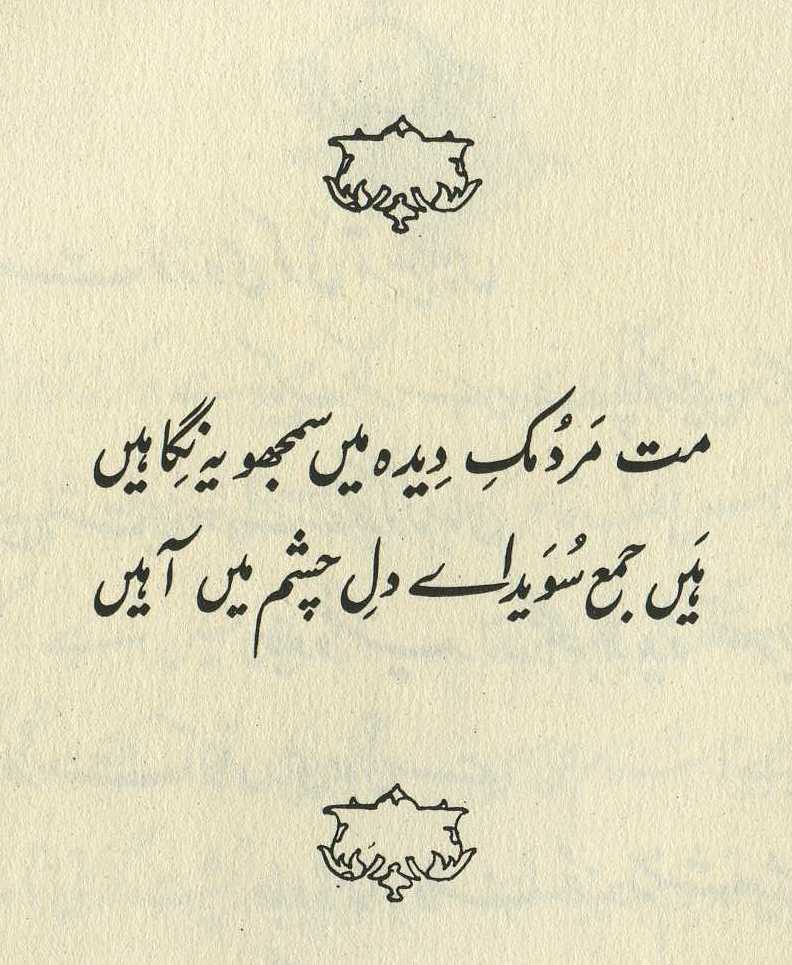 مت مَردُمکِ دِیدہ میں سمجھو یہ نِگاہیں
ہَیں جمع سُوَیداے دلِ چشم میں آہیں